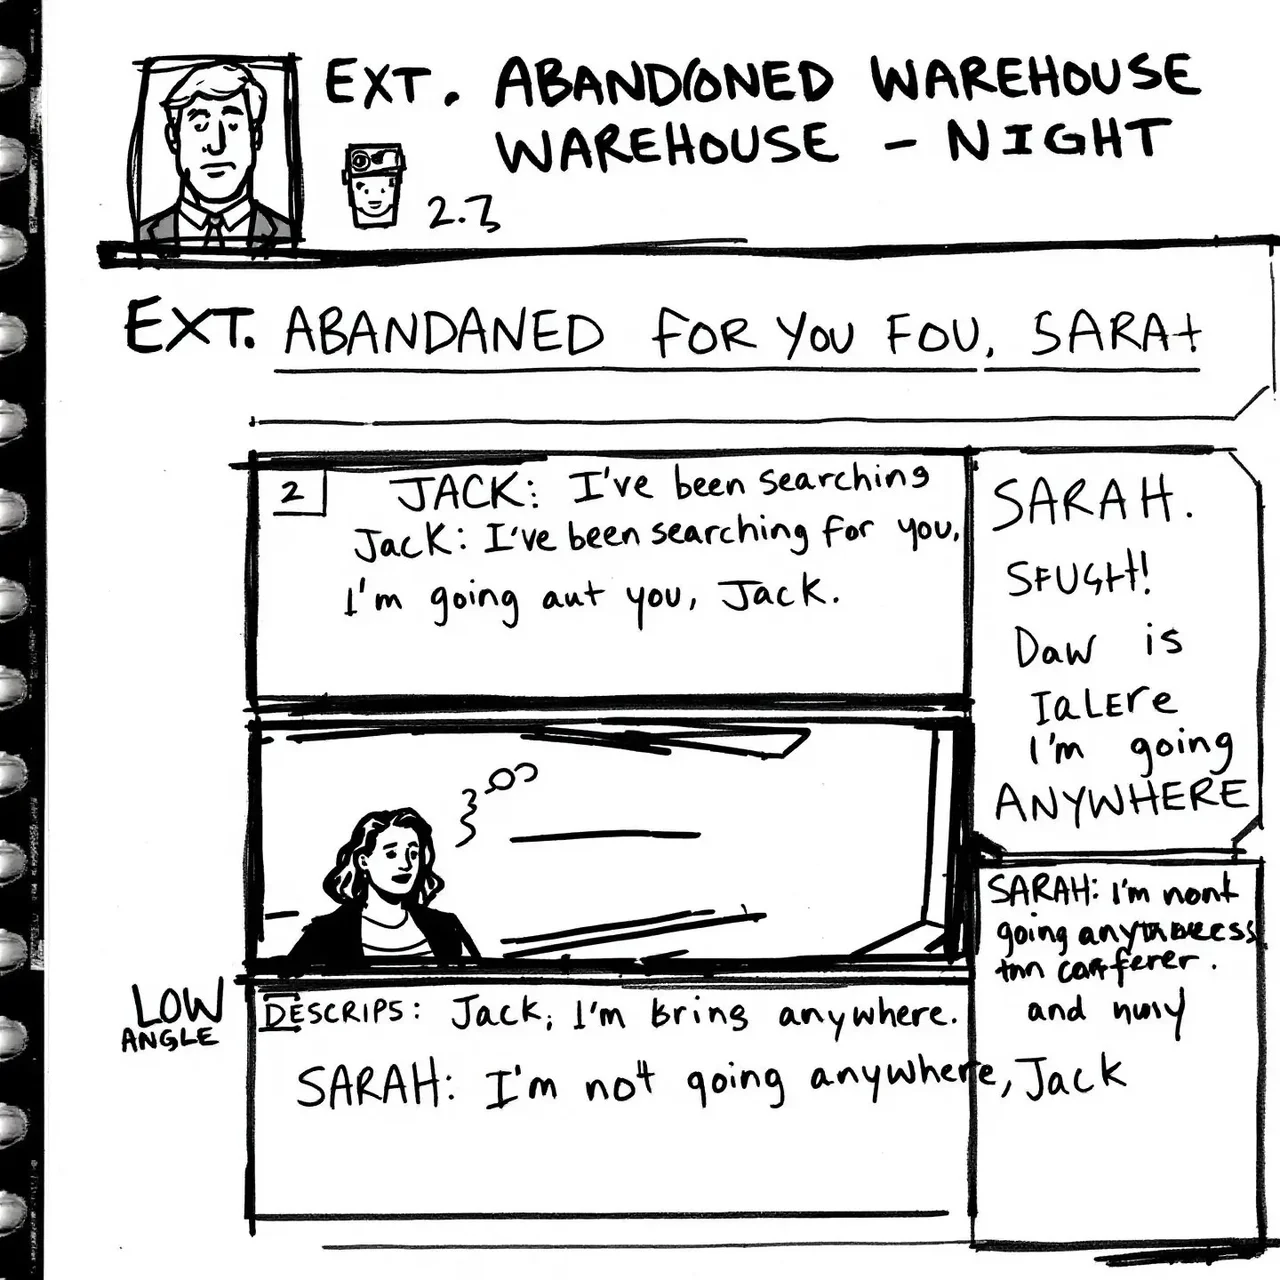 EXT. ABANDONED WAREHOUSE
WAREHOUSE - NIGHT
EXT. ABANDANED FOR YOU FOU, SARAH
2
JACK: I've been searching
Jack: I've been searching for you,
I'm going aut you, Jack.
SARAH.
SFUGHT!
Daw is
IaLEre
I'm going
ANYWHERE
SARAH: I'm nont
going
and
LOW
ANGLE
DESCRIPS: Jack, I'm bring anywhere.
SARAH: I'm not going anywhere, Jack